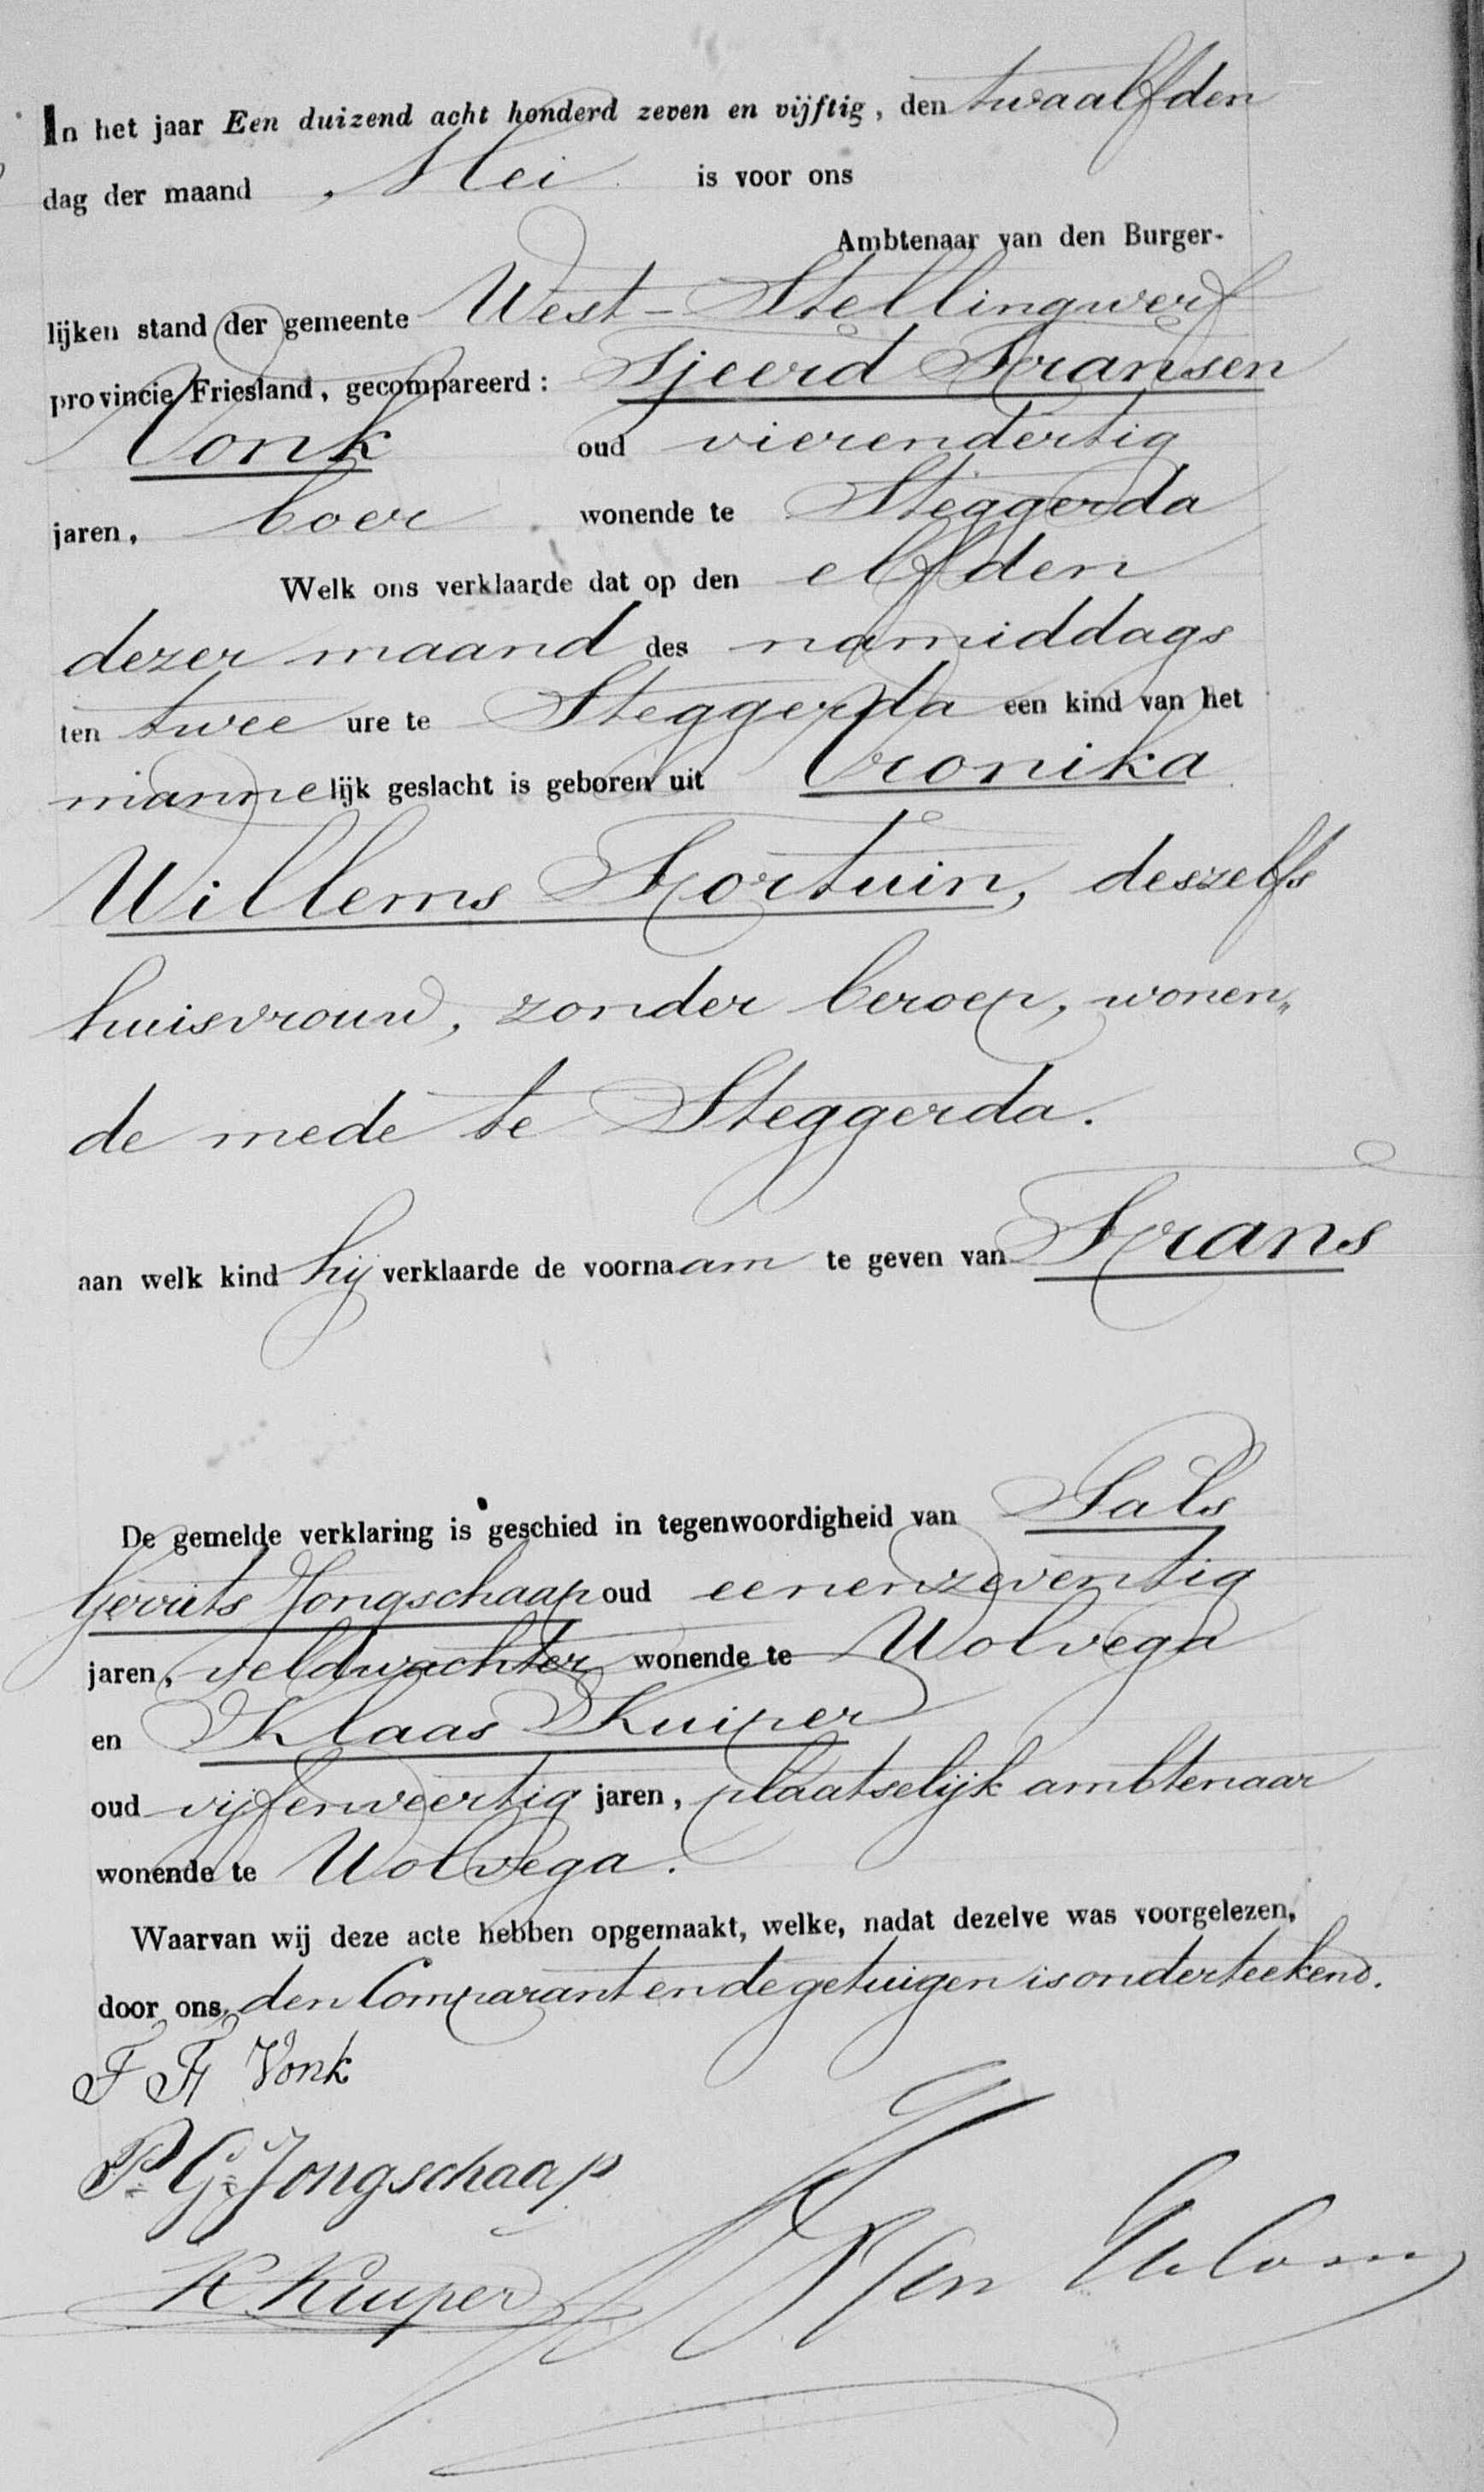 In het jaar Een duizend acht honderd zeven en vijftig, den twaalfden
dag der maand Mei is voor ons
Ambtenaar van den Burger-
lijken stand der gemeente West-Stellingwerf
provincie Friesland, gecompareerd: Sjeerd Fransen
Vonk oud vierendertig
jaren, boer wonende te Steggerda
Welk ons verklaarde dat op den elfden
dezer maand des namiddags
ten twee ure te Steggerda een kind van het
mannelijk geslacht is geboren uit Vronika
Willems Fortuin, deszelfs
huisvrouw, zonder beroep, wonen„
de mede te Steggerda.
aan welk kind hij verklaarde de voornaam te geven van Frans
De gemelde verklaring is geschied in tegenwoordigheid van
Gerrits Jongschaap oud eenenzeventig
jaren, veldwachter wonende te Wolvega
en Klaas Kuiper
oud vijfenveertig jaren, plaatselijk ambtenaar
wonende te Wolvega.
Waarvan wij deze acte hebben opgemaakt, welke, nadat dezelve was voorgelezen,
door ons, den Comparant en de getuigen is onderteekend.
F Vonk
P. G. Jongschaap
K. Kuiper